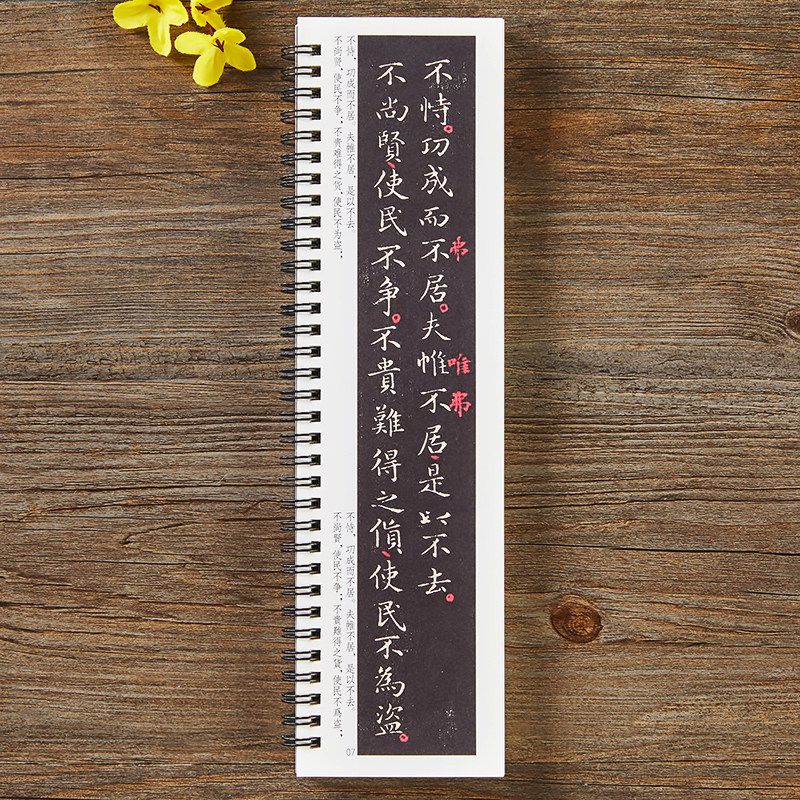 弗
唯
弗
不恃。功成而不居。夫帷不居、是以不去。
不尚賢、使民不争。不貴難得之貨、使民不為盜。
不恃，功成而不居，夫帷不居，是以不去。
不尚贤，使民不争；不贵难得之货，使民不为盗；
不恃，功成而不居，夫帷不居，是以不去。
不尚賢，使民不争；不貴難得之貨，使民不爲盗；
07